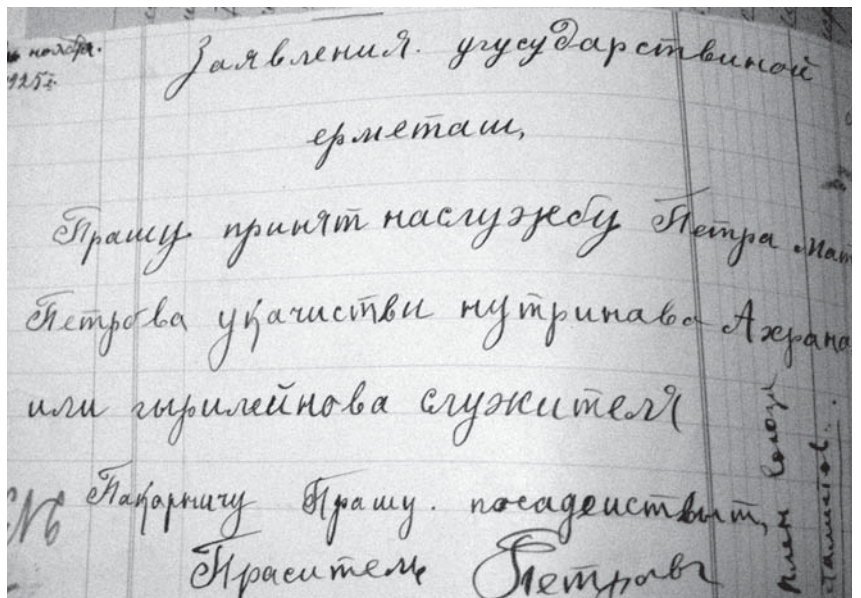 ноября.
1925г.
Заявления. угусударствиной
ерметаш,
Прашу. принят наслужбу Петра Мат
Петрова укачистви нутринава Ахрана
или гырилейнова служителя
Пакорничу Прашу. посадеиствыт,
Праситель Петровъ
№
член союза